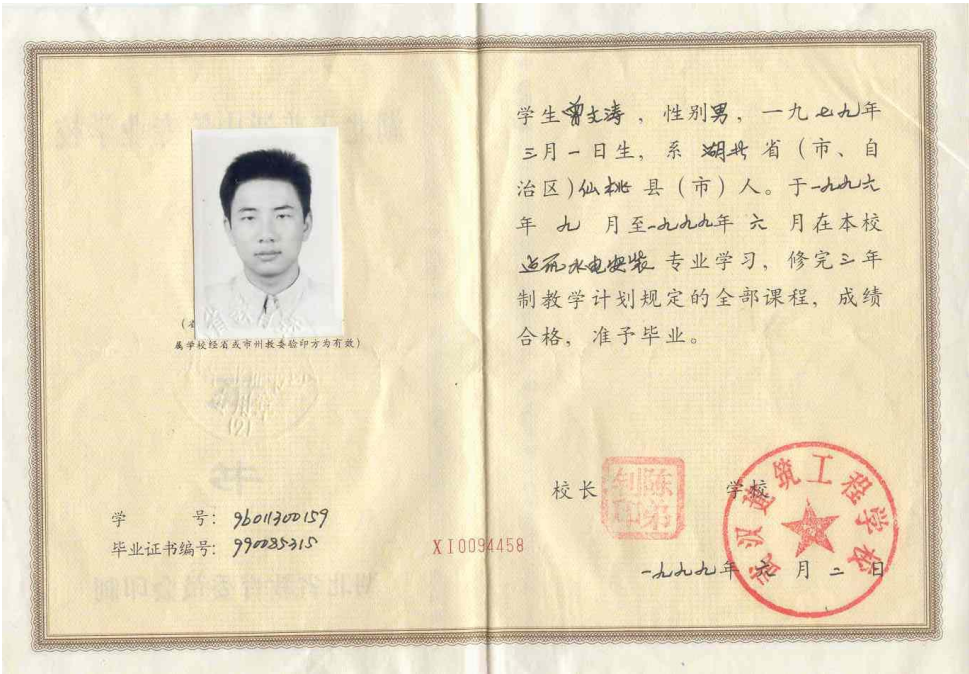 属学校经省或市州教委验印方为有效）
(2)
学 号：9601300159
毕业证书编号：990085315
XI0094458
学生曾文涛，性别男，一九七九年
三月一日生，系湖北省（市、自
治区）仙桃县（市）人。于一九九六
年九月至一九九九年六月在本校
水电安装专业学习，修完三年
制教学计划规定的全部课程，成绩
合格，准予毕业。
校长
学校
武汉建筑工程学校
一九九九年六月二日